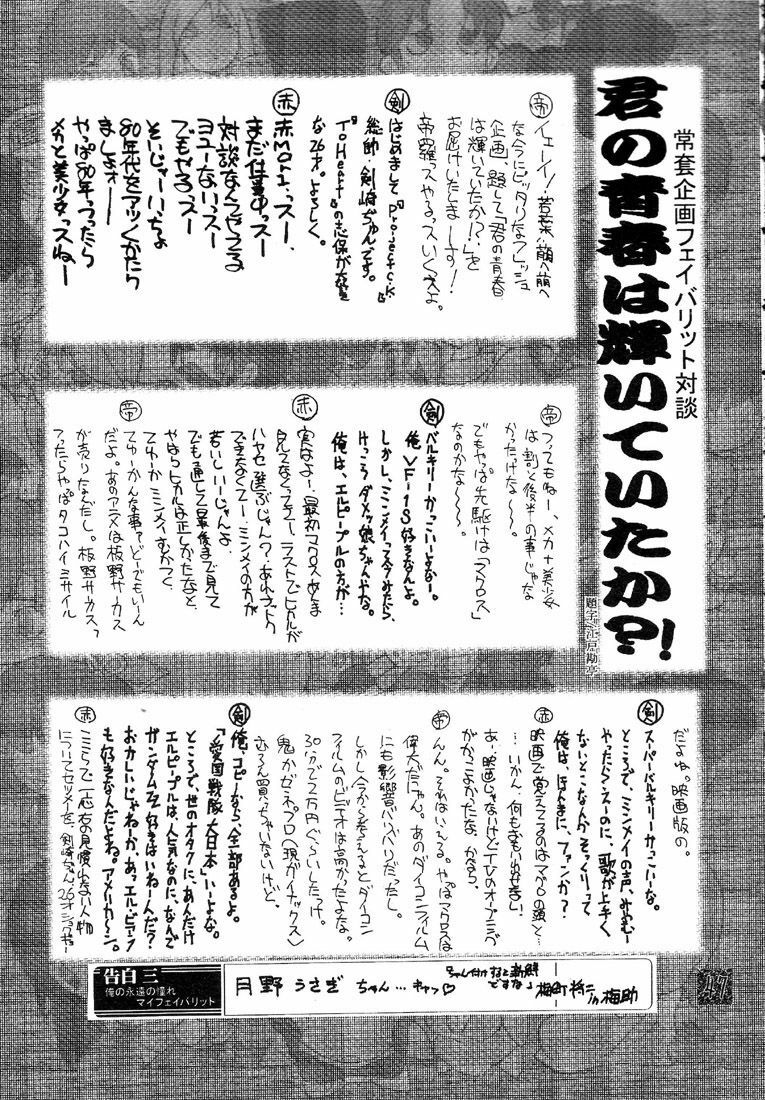 常套企画フェイバリット対談
君の青春は輝いていたか?!
題字・江戸勘亭
帝 イェーイ!若葉萌え萌え
な今にピッタリなフレッシュ
企画、題して「君の青春
は輝いていたか!?」を
お届けいたしまーす!
帝羅ッスやるッスいくスよ。
剣 はじめまして「Project.K」
総帥・剣崎ぢゅんです。
「To Heart」の志保が大好
な26才。よろしく。
赤 赤Moriっスー、
まだ仕事中っスー
対談なんてやってる
ヨユーないっスー
でもやるっスー
そいじゃーいっちょ
80年代をアツくかたり
ましょォー
やっぱ80年つったら
メカと美少女っスねー
帝 つってもねー、メカ+美少女
は割と後半の事じゃな
かったけなー〜〜。
でもやっぱ先駆けは「マクロス」
なのかな〜〜〜。
剣 バルキリーかっこいーよなー。
俺 VF-1S 好きなんよ。
しかし、ミンメイって今みたら、
けっこうダメッ娘ちゃんやな。
俺は、エルピープルの方が…
赤 実はよー、最初マクロスあんま
見てなくってェー、ラストでヒカルが
ハヤセ選ぶじゃん?あれナットク
できなくてェー、ミンメイの方が
若いしいーじゃんよ、
でも通して最後まで見て
やはりヒカルは正しかったなと、
てゆーかミンメイ、むかつく、
帝 てゆーかんな事ァどーでもいーん
だよ。あのアニメは板野サーカス
が売りなんだし。板野サーカス
ったらやっぱタコハイミサイル
だよね。映画版の。
剣 スーパーバルキリーかっこいーな。
ところで、ミンメイの声、みやむー
やったらえーのに、歌が上手く
ないとこなんかそっくりって
俺は、ほんまに、ファンか?
赤 映画で覚えてるのはマクロの頭と…
…いかん、何もおもい出せまい!
あー映画じゃないけどTVのオープニング
がかっこよかったな、なんか。
帝 んん。それはいえる。やっぱマクロスは
偉大だにゃん。あのダイコンフィルム
にも影響バリバリだったし。
しかし今から考えるとダイコン
フィルムのビデオは高かったよな。
30分で2万円ぐらいしたっけ。
鬼かゼネプロ(現ガイナックス)
もちろん買っちゃいないけど。
剣 俺、コピーなら、全部あるよ。
「愛国戦隊大日本」いーよな。
ところで、世のオタクに、あんだけ
エルピープルは、人気なのに、なんで
ガンダムZZ好きはいねーんだ?
おかしいじゃねーか。あっエルピープル
も好きなんだよね。アメリカ〜ン。
赤 ここらで一応お見慣れない人物
告白三
俺の永遠の憧れ
マイフェイバリット
月野うさぎちゃん…キャッ♡
ちゃん付けすると新鮮
ですな♪